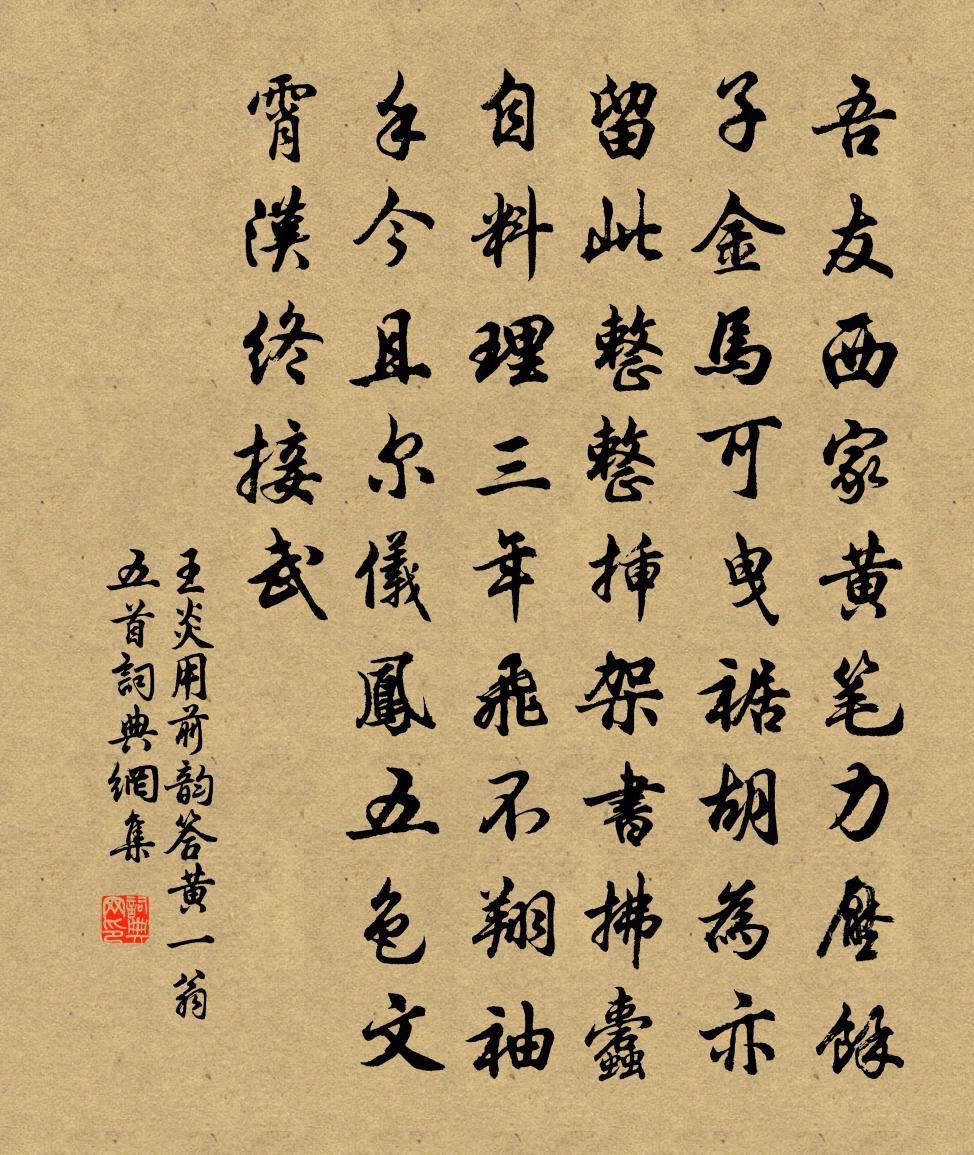 吾友西家黄笔力壓餘
子金馬可曳裾胡為亦
留此整整插架書拂蠹
自料理三年飛不翔袖
手今且尔儀鳳五色文
霄漢終接武
王炎用前韵答黄一翁
五首詞典網集
詞典网印